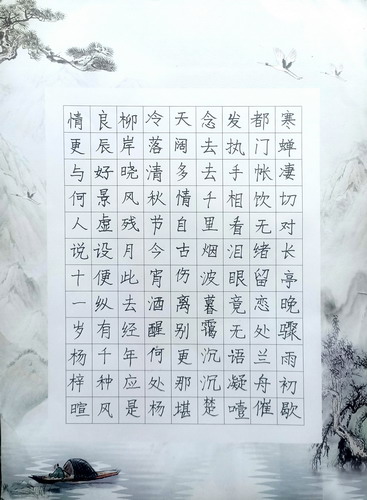 寒蝉凄切对长亭晚骤雨初歇
都门帐饮无绪留恋处兰舟催
发执手相看泪眼竟无语凝噎
念去去千里烟波暮霭沉沉楚
天阔多情自古伤离别更那堪
冷落清秋节今宵酒醒何处杨
柳岸晓风残月此去经年应是
良辰好景虚设便纵有千种风
情更与何人说十一岁杨梓暄